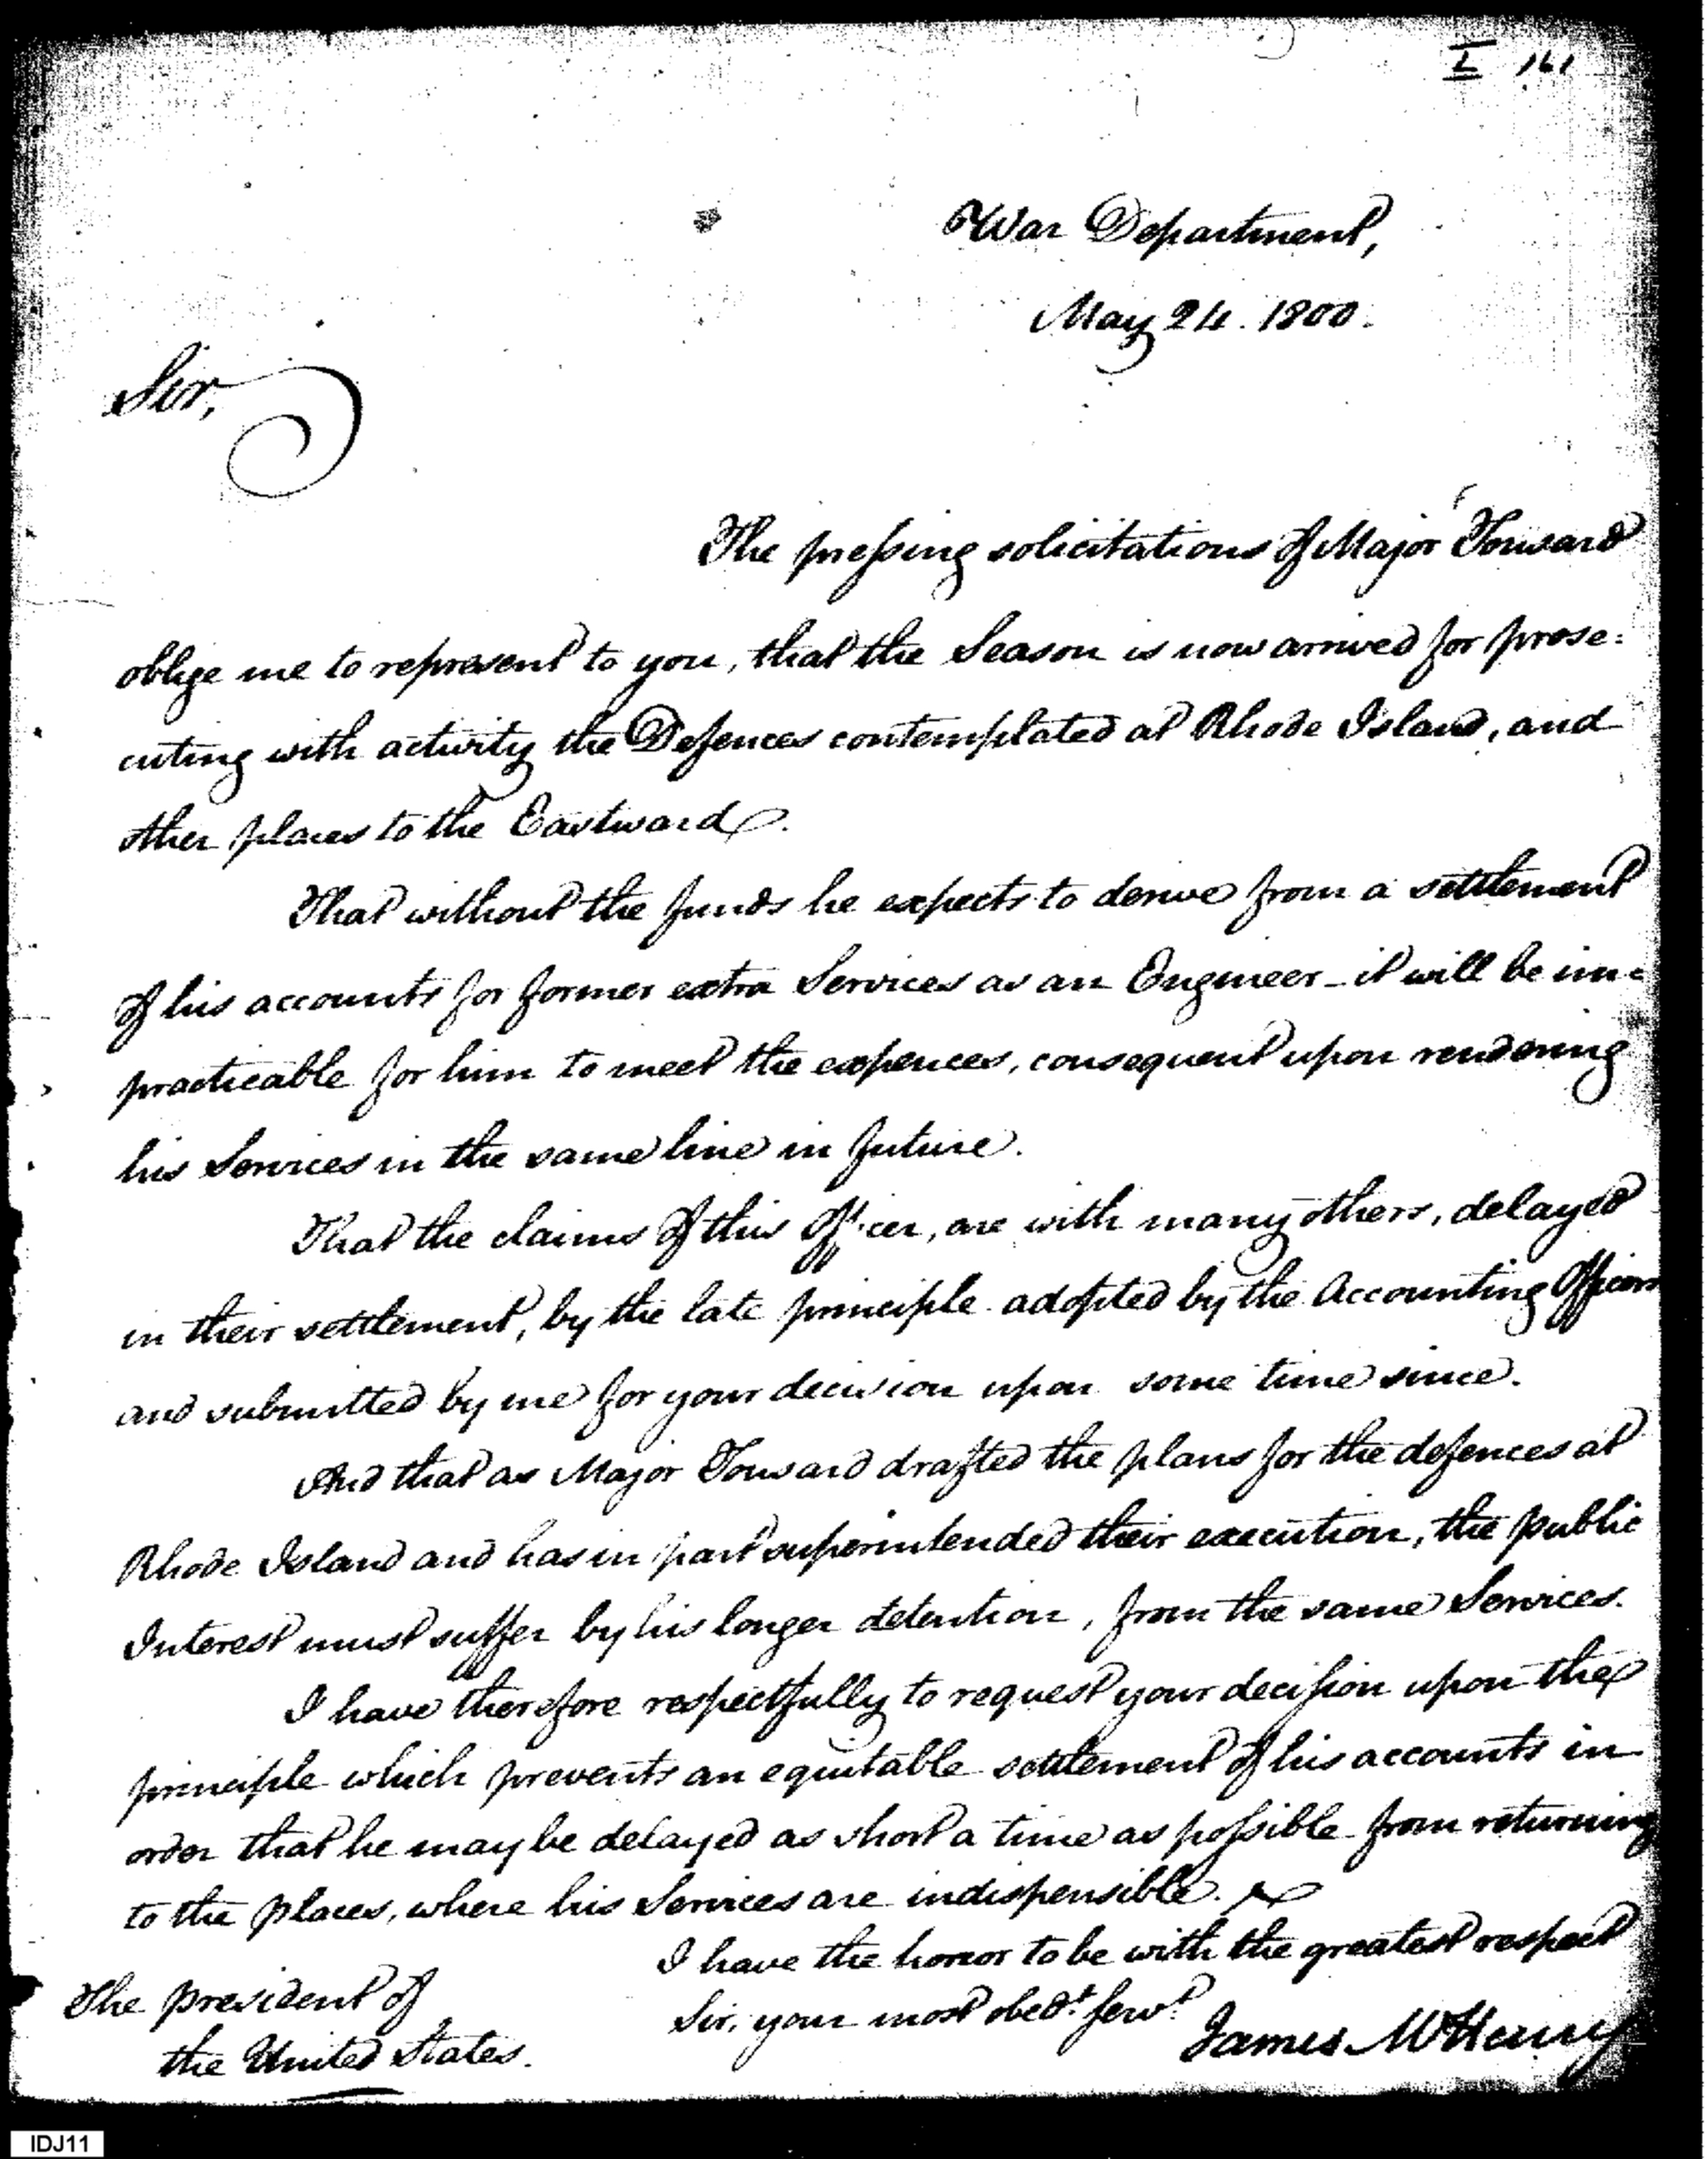 I 161
War Department,
May 24. 1800.
Sir,
The pressing solicitations of Major Tousard
oblige me to represent to you, that the Season is now arrived for prose=
cuting with activity the Defences contemplated at Rhode Island, and
other places to the Eastward.
That without the funds he expects to derive from a settlement
of his accounts for former extra Services as an Engineer - it will be im=
practicable for him to meet the expences, consequent upon rendering
his Services in the same line in future.
That the claims of this Officer, are with many others, delayed
in their settlement, by the late principle adopted by the Accounting Officers
and submitted by me for your decision upon some time since.
And that as Major Tousard drafted the plans for the defences at
Rhode Island and has in part superintended their execution, the public
Interest must suffer by his longer detention, from the same Services.
I have therefore respectfully to request your decision upon the
principle which prevents an equitable settlement of his accounts in
order that he may be delayed as short a time as possible from returning
to the places, where his Services are indispensible.
I have the honor to be with the greatest respect
Sir, your most obedt. servt.
James McHenry
The president of
the United States.
IDJ11